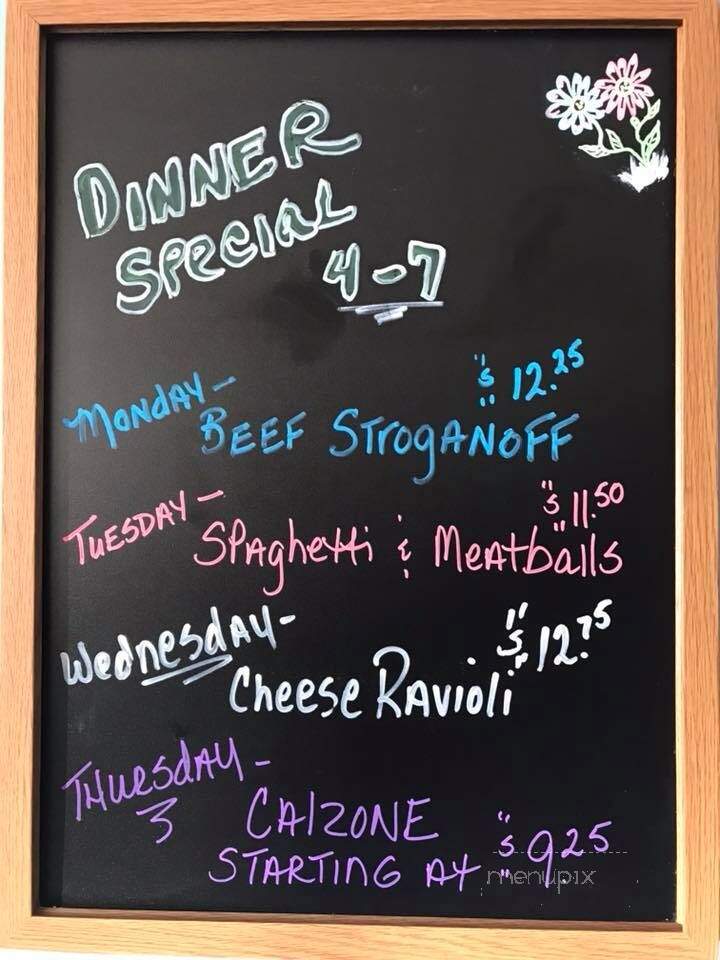 DINNER
SPECIAL
4-7
MONDAY- $12.25
BEEF STROGANOFF
TUESDAY- $11.50
SPAghetti & MEAtballs
WednesdAY- $12.75
Cheese RAVioli
THURSdAY-
CAlZONE
STARTING AT $9.25
menupix